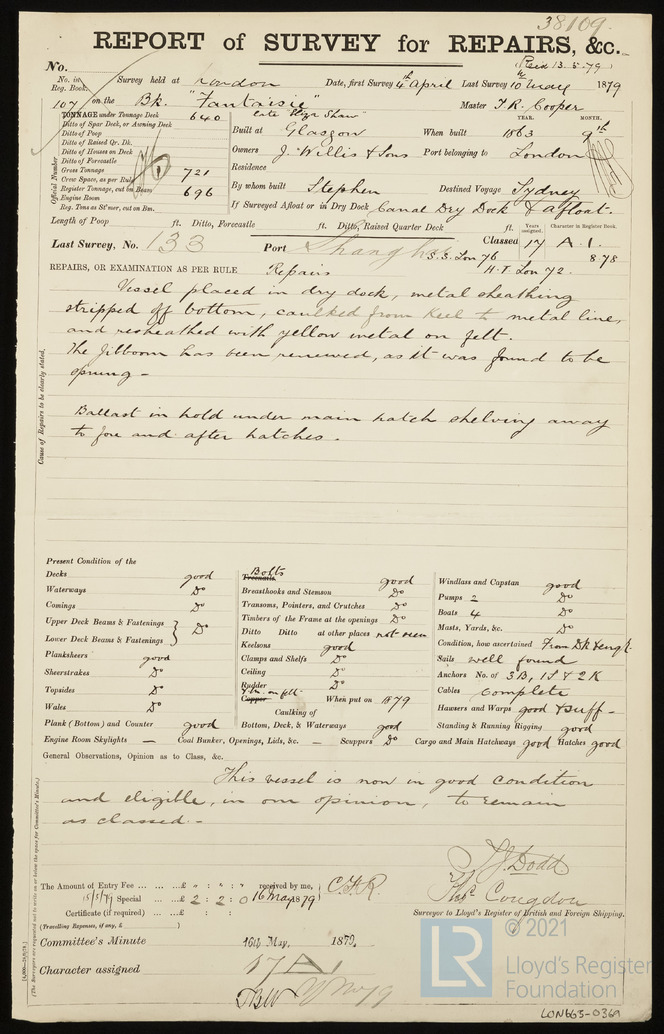 38109
REPORT of SURVEY for REPAIRS, &c.
(Recd 13.5.79)
No.
No. in Reg. Book. Survey held at London Date, first Survey 4th April Last Survey 10th May 1879
107 on the Bk. "Fantaisie" late "Eliza Shaw" Master T.R. Cooper
TONNAGE under Tonnage Deck 640
Ditto of Spar Deck, or Awning Deck
Ditto of Poop
Ditto of Raised Qr. Dk.
Ditto of Houses on Deck
Ditto of Forecastle
Gross Tonnage 721
Crew Space, as per Rule
Register Tonnage, cut on Beam 696
Engine Room
Reg. Tons as St'mer, cut on Bm.
Official Number
YEAR. MONTH.
Built at Glasgow When built 1863 9th
Owners J. Willis & Sons Port belonging to London
Residence
By whom built Stephen Destined Voyage Sydney
If Surveyed Afloat or in Dry Dock Canal Dry Dock & afloat.
Length of Poop ft. Ditto, Forecastle ft. Ditto, Raised Quarter Deck ft.
Years assigned. Character in Register Book.
Last Survey, No. 133 Port Shanghai Classed 17 A.1.
S.S. Lon 76 8.78
REPAIRS, OR EXAMINATION AS PER RULE Repairs H.T. Lon 72.
Vessel placed in dry dock, metal sheathing
stripped off bottom, caulked from keel to metal line,
and resheathed with yellow metal on felt.
The Jibboom has been renewed, as it was found to be
sprung -
Ballast in hold under main hatch shelving away
to fore and after hatches.
Cause of Repairs to be clearly stated.
Present Condition of the
Decks good
Waterways Do
Comings Do
Upper Deck Beams & Fastenings } Do
Lower Deck Beams & Fastenings
Planksheers good
Sheerstrakes Do
Topsides Do
Wales Do
Plank (Bottom) and Counter good
Engine Room Skylights —
Bolts
Treenails good
Breasthooks and Stemson Do
Transoms, Pointers, and Crutches Do
Timbers of the Frame at the openings Do
Ditto Ditto at other places not seen
Keelsons good
Clamps and Shelfs Do
Ceiling Do
Rudder Do
Y.M. on felt.
Copper When put on 1879
Caulking of
Bottom, Deck, & Waterways good
Coal Bunker, Openings, Lids, &c. — Scuppers Do
Windlass and Capstan good
Pumps 2 Do
Boats 4 Do
Masts, Yards, &c. Do
Condition, how ascertained From Dk
Sails well found
Anchors No. of 3B, 1S & 2K
Cables Complete
Hawsers and Warps good & suff -
Standing & Running Rigging good
Cargo and Main Hatchways good Hatches good
General Observations, Opinion as to Class, &c.
This vessel is now in good condition
and eligible, in our opinion, to remain
as classed.-
The Amount of Entry Fee ... ... ... £ " : " : " received by me,
15/5/79 Special ... £ 2 : 2 : 0 16 May 1879
Certificate (if required) ... £ : :
(Travelling Expenses, if any, £ )
Dodd
Thos. Congdon
Surveyor to Lloyd's Register of British and Foreign Shipping.
Committee's Minute 16th May. 1879.
Character assigned 17 A 1
© 2021
LR Lloyd's Register Foundation
LON665-0369